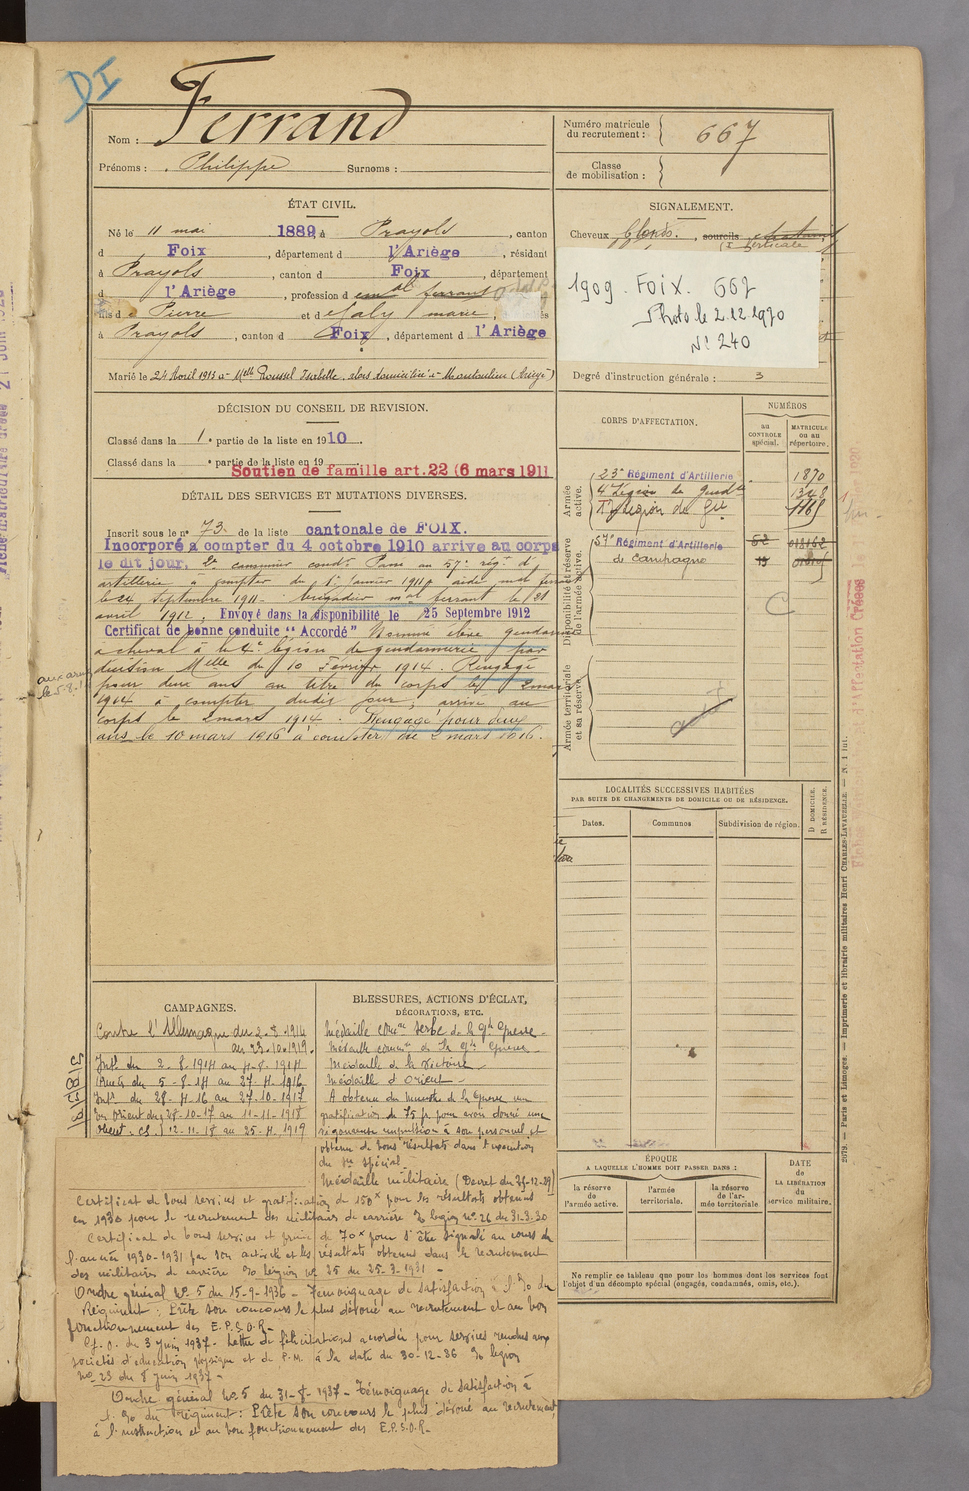 DI
Nom : Ferrand
Prénoms : Philippe Surnoms :
Numéro matricule
du recrutement : 667
Classe
de mobilisation :
ÉTAT CIVIL.
Né le 11 mai 1889, à Prayols, canton
d Foix, département d l'Ariège, résidant
à Prayols, canton d Foix, département
d l'Ariège, profession d
fils d e Pierre et d e Galy marie,
à Prayols, canton d Foix, département d l'Ariège
Marié le 24 Avril 1913 à Melle Roussel Isabelle, alors domiciliée à Montoulieu (Ariège)
SIGNALEMENT.
Cheveux blonds. sourcils
verticale
1909. FOIX. 667
Photo le 2.12.1970
N° 240
Degré d'instruction générale : 3
DÉCISION DU CONSEIL DE REVISION.
Classé dans la 1e partie de la liste en 1910.
Classé dans la e partie de la liste en 19
Soutien de famille art. 22 (6 mars 1911
DÉTAIL DES SERVICES ET MUTATIONS DIVERSES.
Inscrit sous le n° 73 de la liste cantonale de FOIX.
Incorporé à compter du 4 octobre 1910 arrive au corps
le dit jour, 2e canonnier condr Passé au 57e régt d'
artillerie à compter du 1er Janvier 1911 aide mal ferrant
le 24 Septembre 1911. brigadier mal ferrant le 21
avril 1912, Envoyé dans la disponibilité le 25 Septembre 1912
Certificat de bonne conduite "Accordé" Nommé élève gendarme
à cheval à la 4e légion de gendarmerie par
décision Melle du 10 Février 1914. Rengagé
pour deux ans au titre du corps le 2 mars
1914 à compter dudit jour, arrivé au
corps le 2 mars 1914. Rengagé pour deux
ans le 10 mars 1916 à compter du 2 mars 1916.
CORPS D'AFFECTATION.
NUMÉROS
au
CONTROLE
spécial.
MATRICULE
ou au
répertoire.
Armée
active.
23e Régiment d'Artillerie 1870
4e Légion de Gendie 1348
17e légion de Gie
Disponibilité et réserve
de l'armée active.
57e Régiment d'Artillerie 52
de campagne 19
C
Armée territoriale
et sa réserve.
LOCALITÉS SUCCESSIVES HABITÉES
PAR SUITE DE CHANGEMENTS DE DOMICILE OU DE RÉSIDENCE.
Dates. Communes Subdivision de région.
D DOMICILE.
R RÉSIDENCE.
CAMPAGNES.
Contre l'Allemagne du 2.8.1914
au 23.10.1919.
Intr du 2-8-1914 au 4-8-1914
du 5-8-14 au 27-4-1916
Intr du 28-4-16 au 27-10-1917
En Orient du 28-10-17 au 11-11-1918
Orient 12-11-18 au 25-4-1919
BLESSURES, ACTIONS D'ÉCLAT,
DÉCORATIONS, ETC.
Médaille comve serbe de la gde Guerre
Médaille commve de la gde Guerre
Médaille de la Victoire
Médaille d'Orient
A obtenu du ministre de la Guerre une
gratification de 75 fr pour avoir donné une
vigoureuse impulsion à son personnel et
obtenu de bons résultats dans l'exécution
du spécial
Médaille militaire (Décret du
Certificat de bons services et gratification de 150x pour les résultats obtenus
en 1930 pour le recrutement des militaires de carrière légion no 26 du 31-3-30
Certificat de bons services et prime de 70x pour s'être signalé au cours de
l'année 1930-1931 par son activité et les résultats obtenus dans le recrutement
des militaires de carrière légion no 25 du 25-3-1931
Ordre général no 5 du 15-9-1936 - Témoignage de satisfaction à du
Régiment : Prête son concours le plus dévoué au recrutement et au bon
fonctionnement des E.P.S.O.R.
du 3 juin 1937 - Lettre de félicitations accordée pour services rendus aux
sociétés d'éducation physique et de P.M. à la date du 30-12-36 légion
no 23 du 8 juin 1937 -
Ordre général no 5 du 31-8-1937 - Témoignage de satisfaction à
du Régiment : Prête son concours le plus dévoué au recrutement
à l'instruction et au bon fonctionnement des E.P.S.O.R.
ÉPOQUE
A LAQUELLE L'HOMME DOIT PASSER DANS :
DATE
DE
LA LIBÉRATION
du
service militaire.
la réserve
de
l'armée active.
l'armée
territoriale.
la réserve
de l'ar-
mée territoriale
Ne remplir ce tableau que pour les hommes dont les services font
l'objet d'un décompte spécial (engagés, condamnés, omis, etc.).
2079. — Paris et Limoges. — Imprimerie et librairie militaires Henri CHARLES-LAVAUZELLE. — N. 1 int.